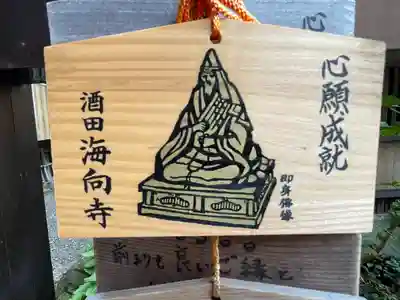 心願成就
即身佛様
酒田海向寺
前よりも良いご縁と